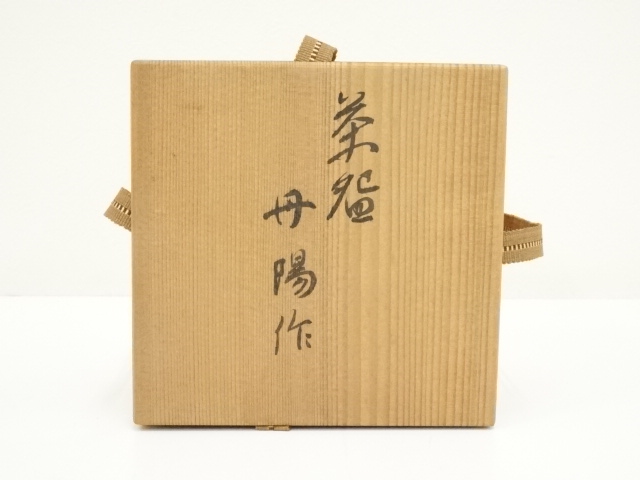 茶盌
丹陽作